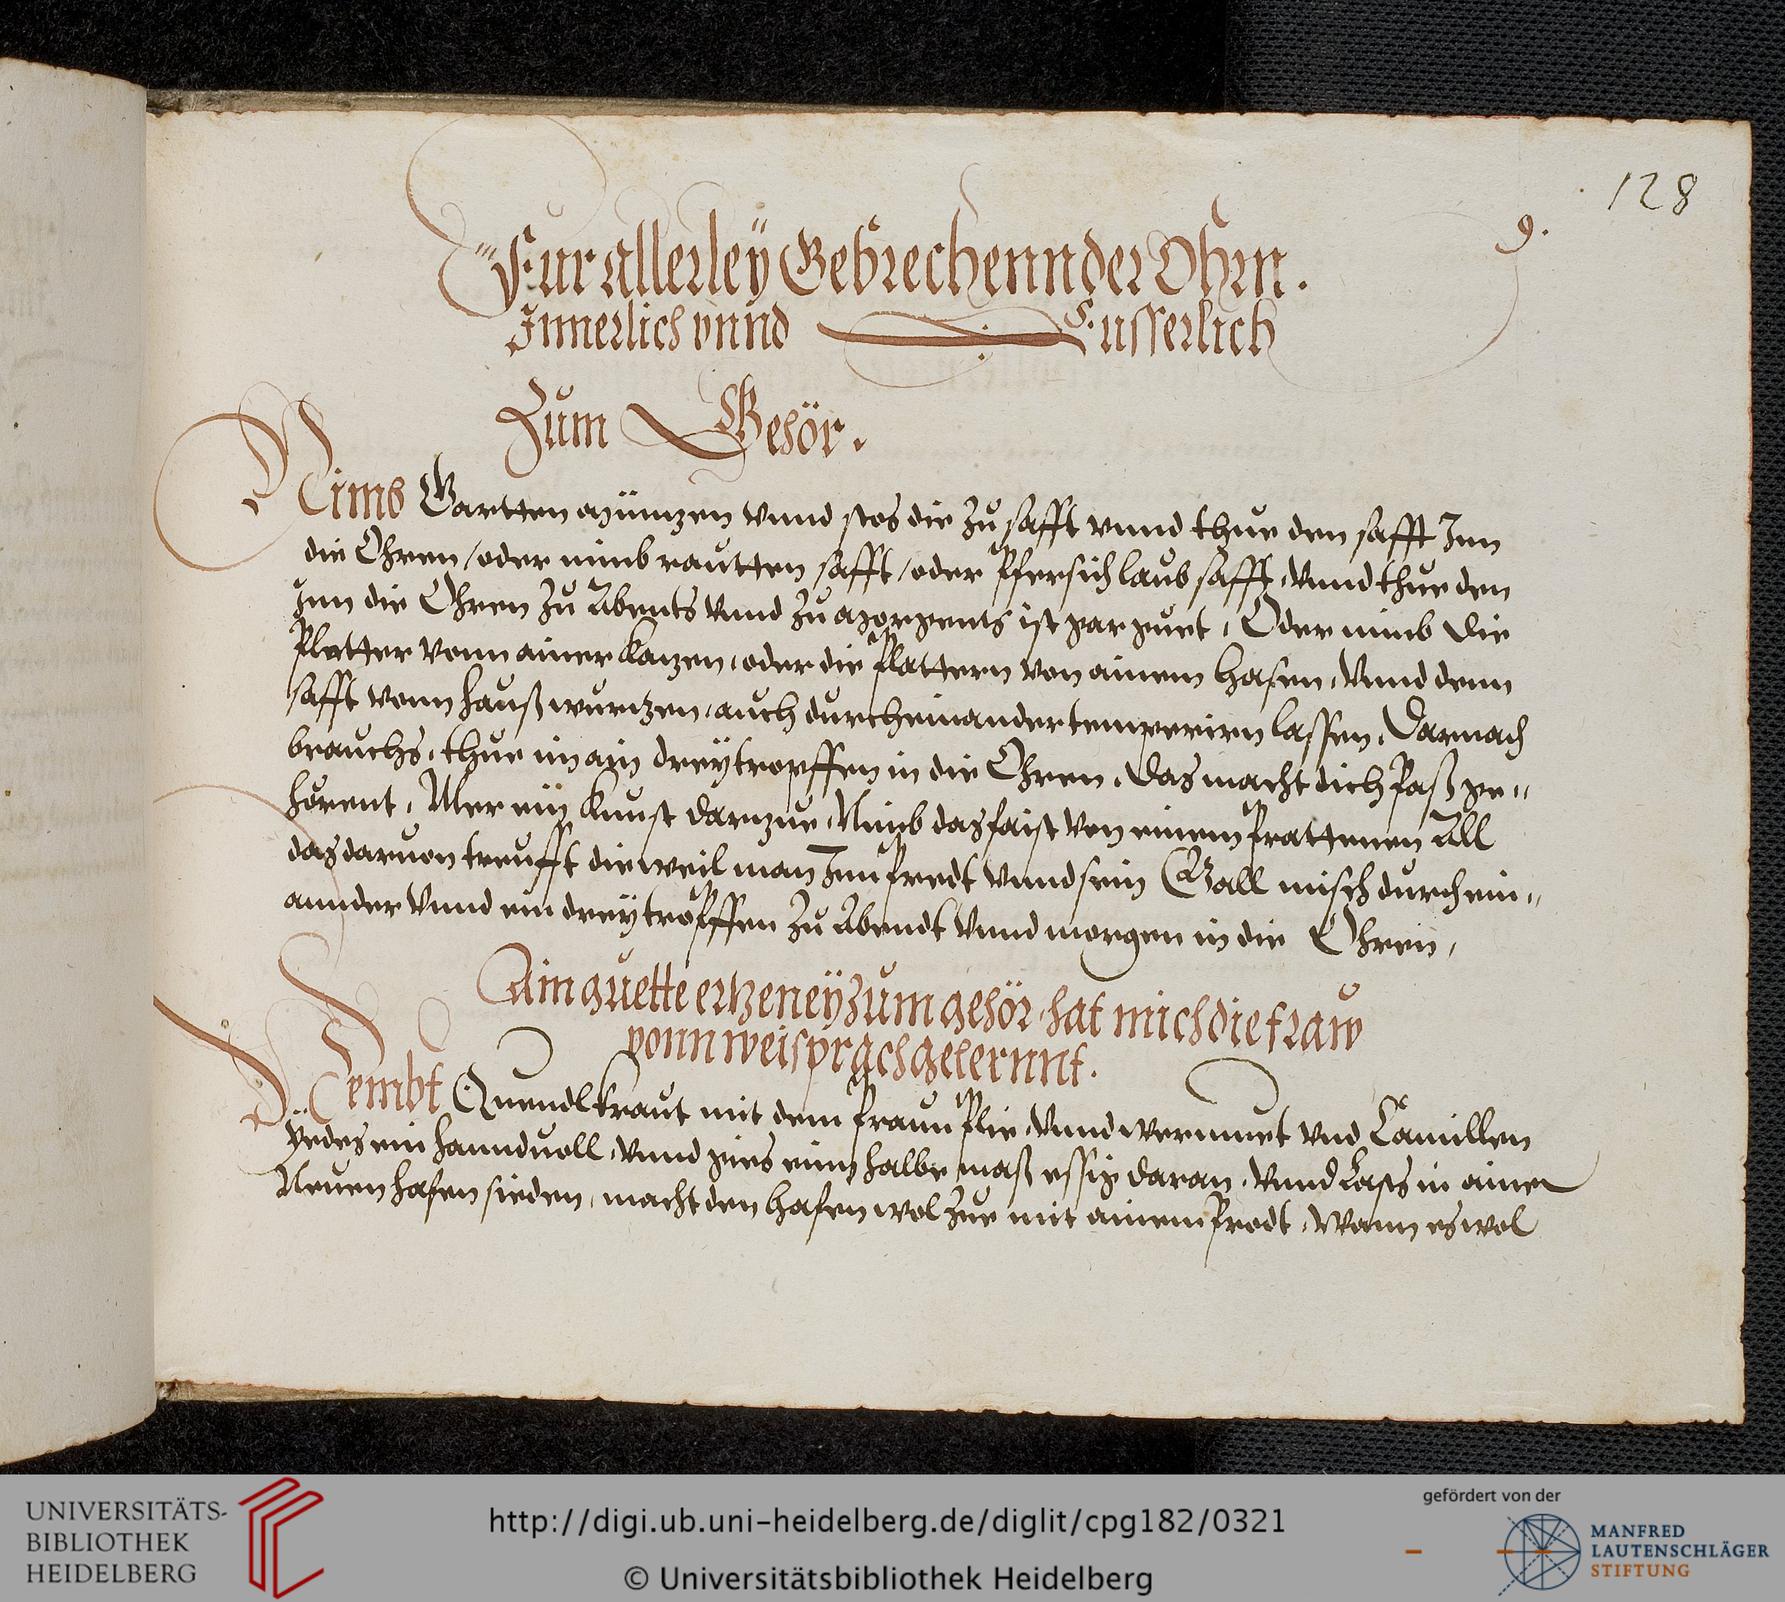 128
9.
Fur allerley Gebrechenn der Ohrn.
Innerlich vnnd Eusserlich
Zum Gehör.
Nimb Gartten münzen vnnd stos die zu safft vnnd thue den safft Inn
die Ohren / oder nimb rautten safft / oder Pfersichlaub safft, vnnd thue den
Inn die Ohren zu Abents vnnd zu morgents ist gar guet, Oder nimb die
Platter vonn ainer Kazen, oder die plattern von ainem hasen, vnnd denn
safft vonn haußwurtzen, auch durcheinander temperirn lassen, Darnach
brauchs, thue im ain drey tropffen in die Ohren, das macht dich paß ge„
hörent, Mer ein Kunst darzue, Nimb das faist von einem prattenen All
das daruon treufft dieweil man Inn predt vnnd sein Gall misch durch ein„
annder vnnd ein drey tröpffen zu Abendt vnnd morgen in die Ohren,
Ain guette ertzeney zum gehör, hat mich die fraw
vonn weisprach gelernnt.
Nembt Quendlkraut mit dem praun plie, vnnd wermuet vnd Camillen
yedes ein hannduoll, vnnd gies ein halbe maß essig daran, vnnd Lass in ainem
Neuen hafen sieden, macht den hafen wol zue mit ainem predt, Wann es wol
UNIVERSITÄTS-
BIBLIOTHEK
HEIDELBERG
http://digi.ub.uni-heidelberg.de/diglit/cpg182/0321
© Universitätsbibliothek Heidelberg
gefördert von der
MANFRED
LAUTENSCHLÄGER
STIFTUNG